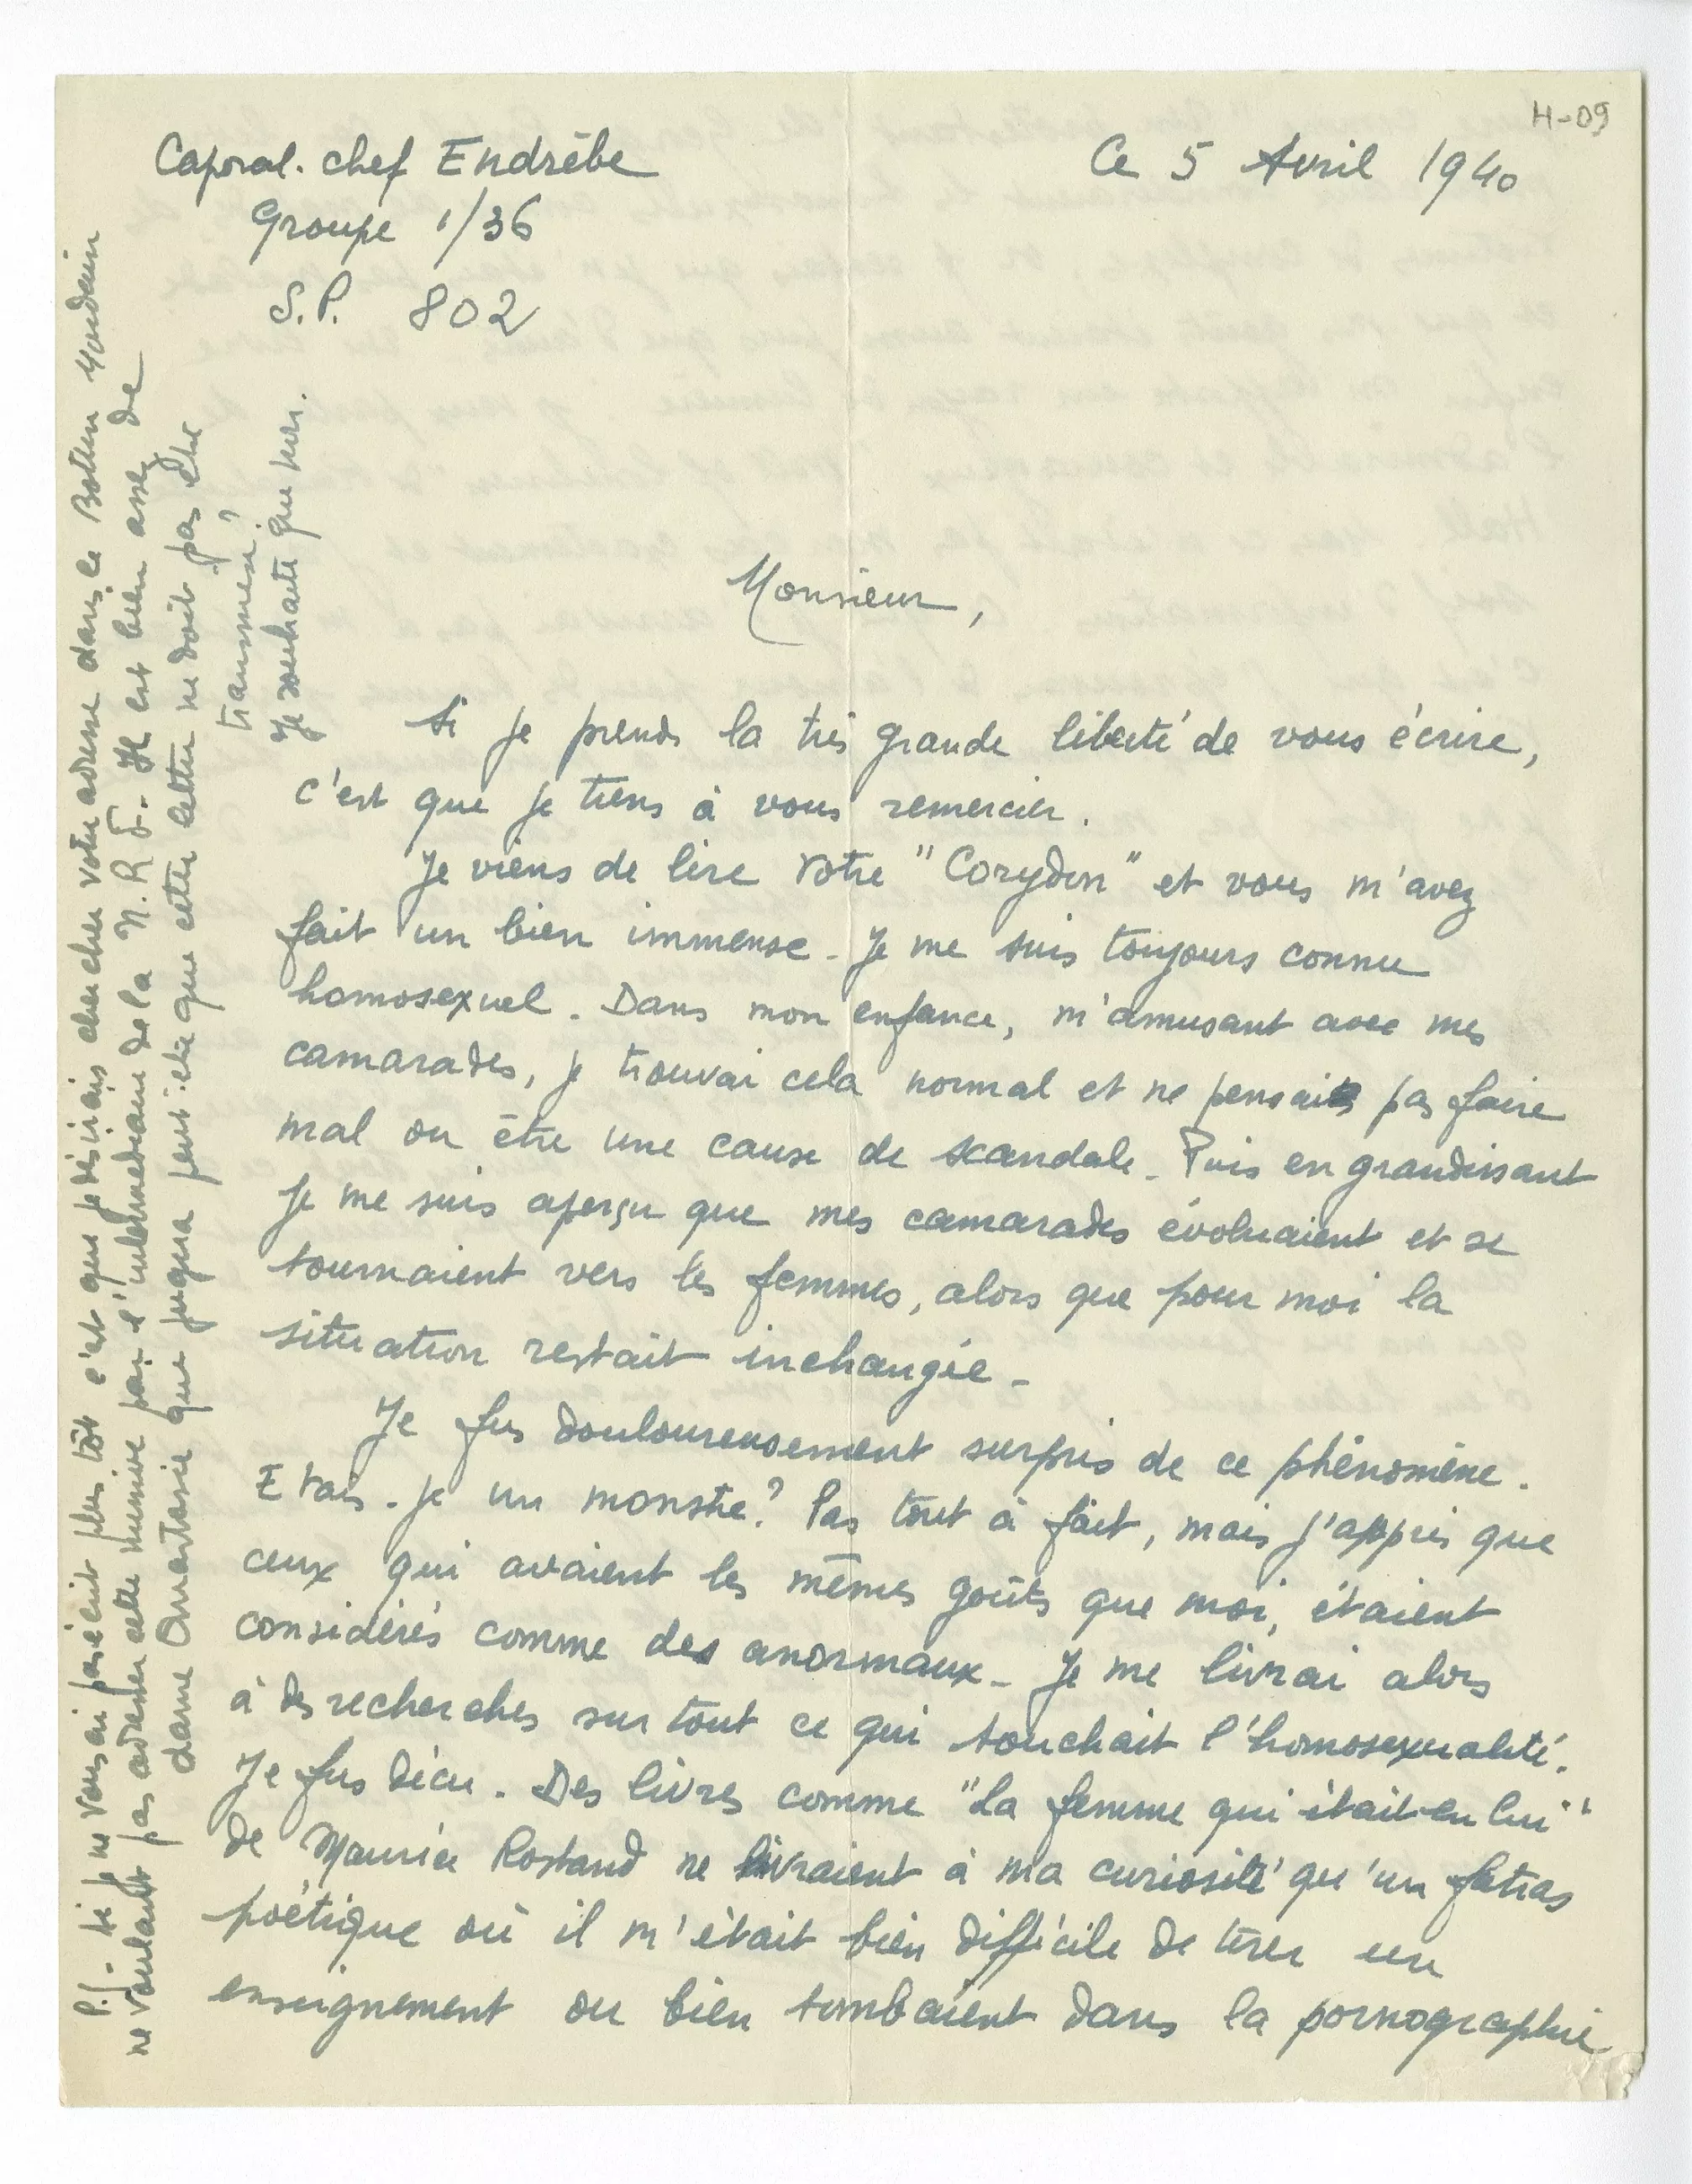 H-09
Caporal-chef Endrèbe
Groupe 1/36
S.P. 802
Ce 5 Avril 1940
Monsieur,
Si je prends la très grande liberté de vous écrire,
c'est que je tiens à vous remercier.
Je viens de lire votre "Corydon" et vous m'avez
fait un bien immense. Je me suis toujours connu
homosexuel. Dans mon enfance, m'amusant avec mes
camarades, je trouvai cela normal et ne pensais pas faire
mal ou être une cause de scandale. Puis en grandissant
je me suis aperçu que mes camarades évoluaient et se
tournaient vers les femmes, alors que pour moi la
situation restait inchangée.
Je fus douloureusement surpris de ce phénomène.
Etais-je un monstre? Pas tout à fait, mais j'appris que
ceux qui avaient les mêmes goûts que moi, étaient
considérés comme des anormaux. Je me livrai alors
à des recherches sur tout ce qui touchait l'homosexualité.
Je fus déçu. Des livres comme "La femme qui était en lui"
de Maurice Rostand ne livraient à ma curiosité qu'un fatras
poétique où il m'était bien difficile de tirer un
enseignement ou bien tombaient dans la pornographie
P.S. - Si je ne vous ai pas écrit plus tôt c'est que je désirais chercher votre adresse dans le Bottin Mondain
ne voulant pas adresser cette missive par l'intermédiaire de la N.R.F. Il est bien assez de
dame Anastasie que jugera peut-être que cette lettre ne doit pas être
transmise?
Je souhaite que non.